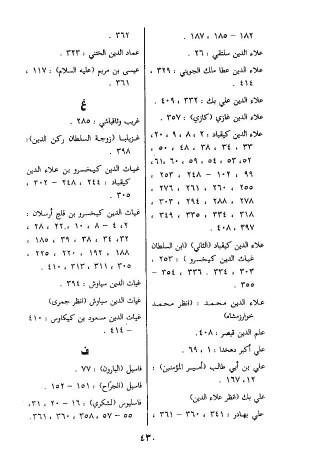 ١٨٢ - ١٨٥ ، ١٨٧ .
علاء الدين سلتقي : ٢٦ .
علاء الدين عطا ملك الجويني : ٣٢٩ ،
٤١٤ .
علاء الدين علي بك : ٣٣٢ ، ٤٠٩ .
علاء الدين غازي (كازي) : ٣٥٧ .
علاء الدين كيقباد : ٢ ، ٨ ، ٩ ، ٢٠،
٣٣ ، ٣٤ ، ٣٨ ، ٤٨ ، ٥٠ ،
٥٢، ٥٣ ، ٥٤ ، ٥٩ ، ٦٠ ،٦١،
٩٩ ، ١٠٢ - ٢٤٨ ، ٢٥٣ ،
٢٥٥ ، ٢٦٠ ، ٢٦١ ، ٢٧٦ ،
٢٧٨ ، ٢٨٨ ، ٢٩٤ ، ٣٠٣ ،
٣١٨ ، ٣٣٤ ، ٣٣٥ ، ٣٤٩ ،
٣٩٧ ، ٤٠٨ .
علاء الدين كيقباد (الثاني) (ابن السلطان
غياث الدين كيخسرو) : ٢٥٣ ،
٣٠٣ ، ٣٣٤ . ٣٣٦ ، ٣٥٤ -
٣٥٥ .
علاء الدين محمد : (انظر محمد
خوارزمشاه)
علم الدين قيصر : ٤٠٨ .
علي أكبر دهخدا : ١ ، ٦٩ .
علي بن أبي طالب (أمير المؤمنين) :
١٢، ١٦٧ .
علي بك (انظر علاء الدين)
علي بهادر : ٣٤١ ، ٣٦٠ - ٣٦١ ،
٣٦٢ .
عماد الدين الختني : ٣٢٣ .
عيسى بن مريم (عليه السلام) : ١١٧ ،
٣٦١ .
غ
غريب وثاقباشي : ٢٨٥ .
غزيليا (زوجة السلطان ركن الدين):
٣٩٨ .
غياث الدين كيخسرو بن علاء الدين
كيقباد : ٢٤٤ ، ٢٤٨ - ٣٠٢ ،
٣٠٥ .
غياث الدين كيخسرو بن قلج أرسلان :
٢، ٤ - ٨ ، ١٠ ، ٢٢ ، ٢٨ ،
٣٢، ٣٤ ، ٣٨ ، ٣٩ ، ١٨٥ ،
١٨٨ ، ١٩٢ ، ٢٢٠ ، ٢٢٥ ،
٣٠٥ ، ٣١١ ، ٣١٣ ، ٤١٠ .
غياث الدين سياوش : ٣٩٤ .
غياث الدين سياوش (انظر جمري)
غياث الدين مسعود بن كيكاوس : ٤١٠
- ٤١٤ .
ف
فاسيل (البارون) : ٧٧ .
فاسيل (الجراح) : ١٥١ - ١٥٢ .
فاسليوس (لشكري) : ١٦ - ٢٠ ، ٣١،
٥٥ - ٥٧ ، ٣٥٨ ، ٣٦٠ ، ٣٦١.
٤٣٠